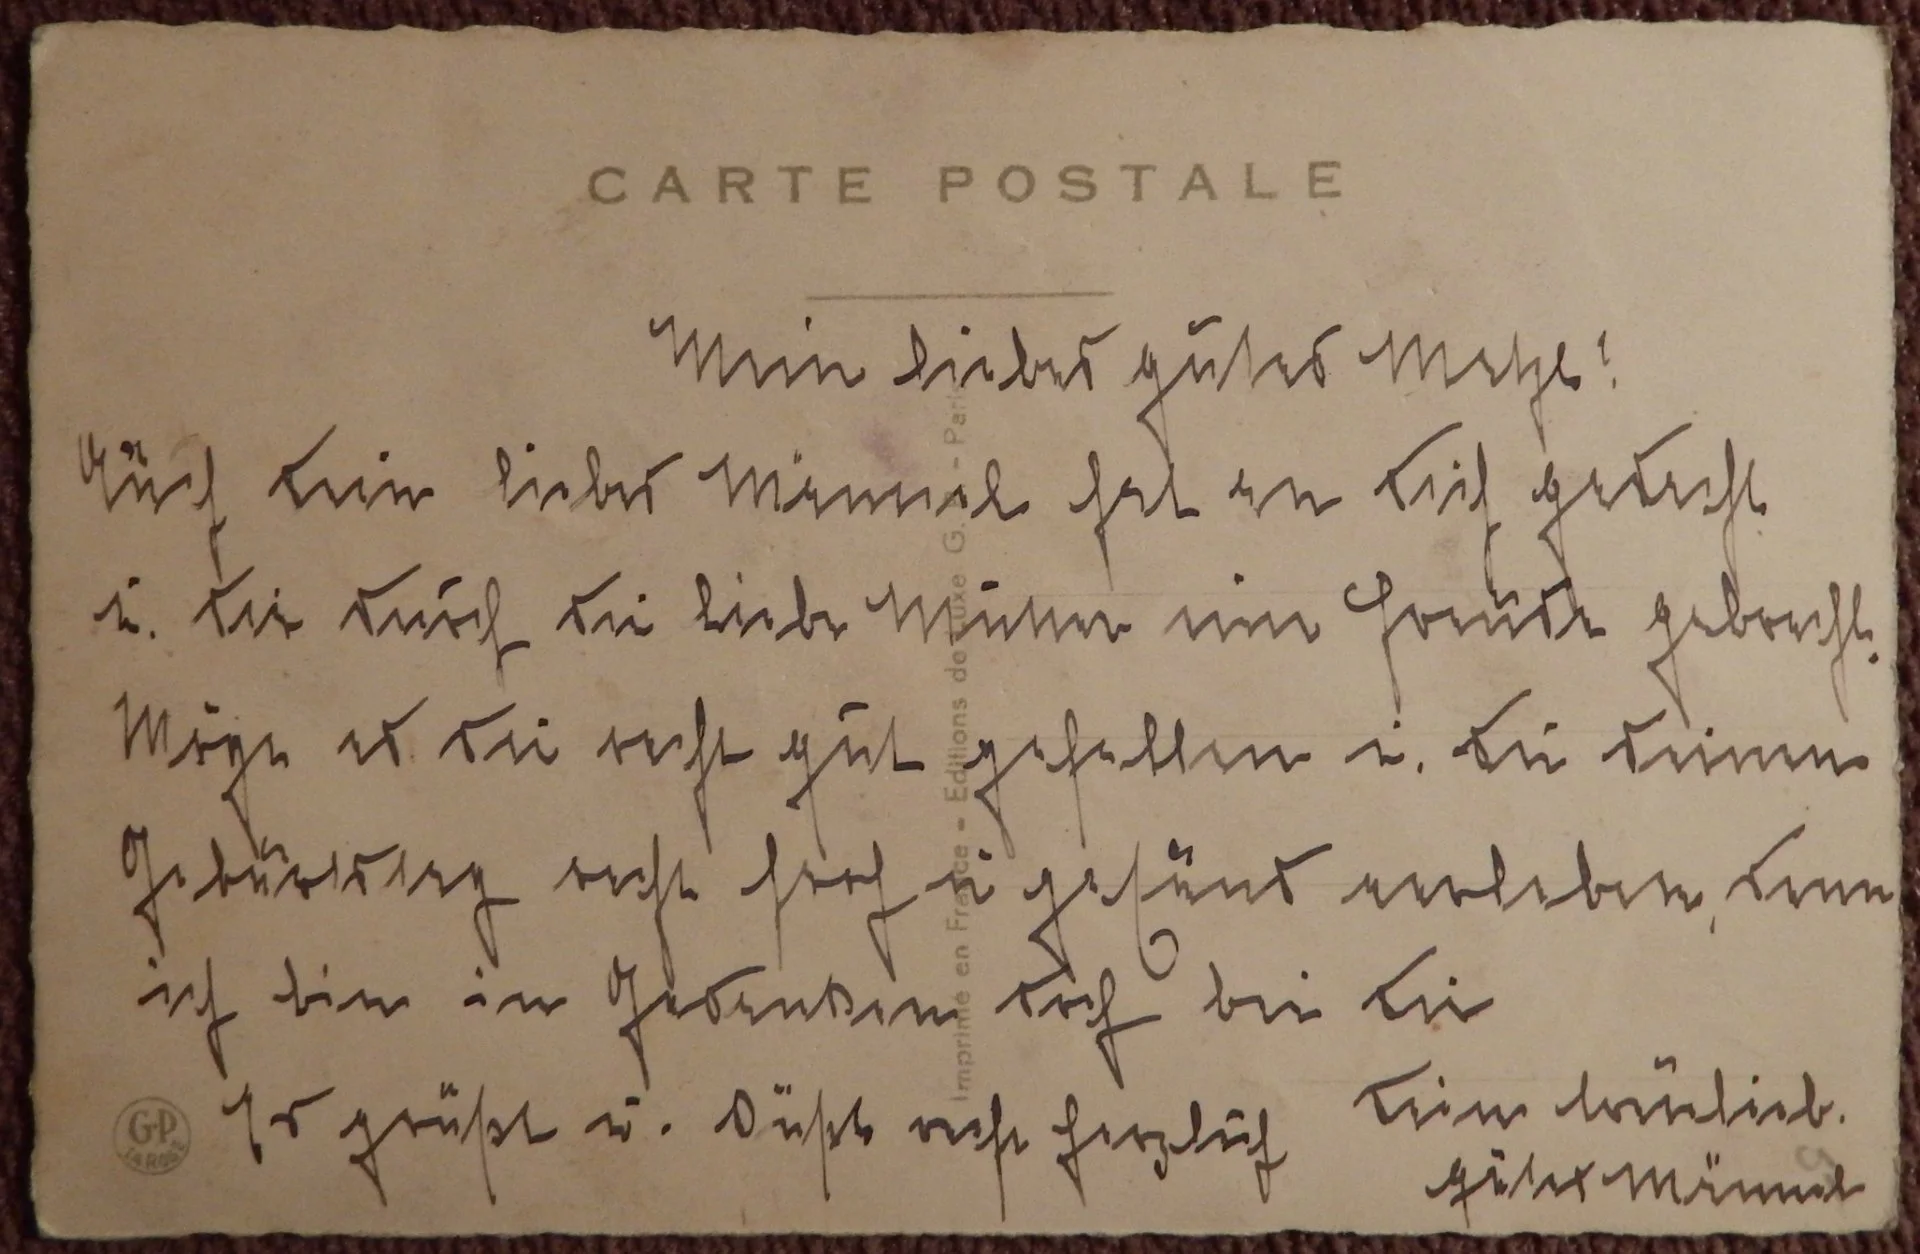 CARTE POSTALE
Mein liebes gutes
Auch dein liebes Männel hat an dich gedacht
u. dir durch die liebe Mutter eine Freude gebracht.
Möge es dir recht gut gefallen u. du deinen
Geburtstag recht froh u gesund verleben, denn
ich bin in Gedanken doch bei dir
Es grüßt u. küßt recht herzlich dein treulieb.
gutes Männel
Imprimé en France - Editions de Luxe G. - Paris
G.P.